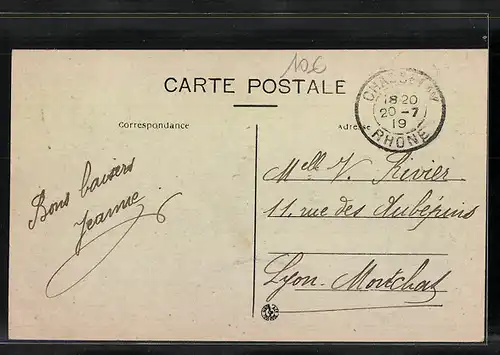 106
CARTE POSTALE
CHASSELAY
18 20
20-7
19
RHÔNE
Correspondance
Adresse
Bons baisers
Jeanne
Melle V. Rivier
11. rue des Aubépins
Lyon-Montchat